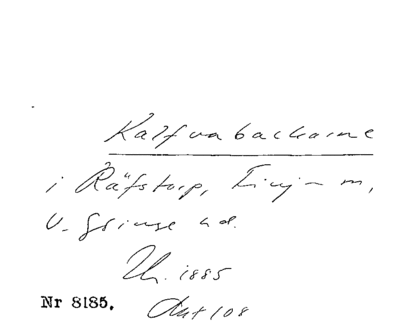 Kalfvabackarne
i Räfstorp, Finja m,
V. Göinge hd.
Th. 1885
Nr 8185. Ant 108